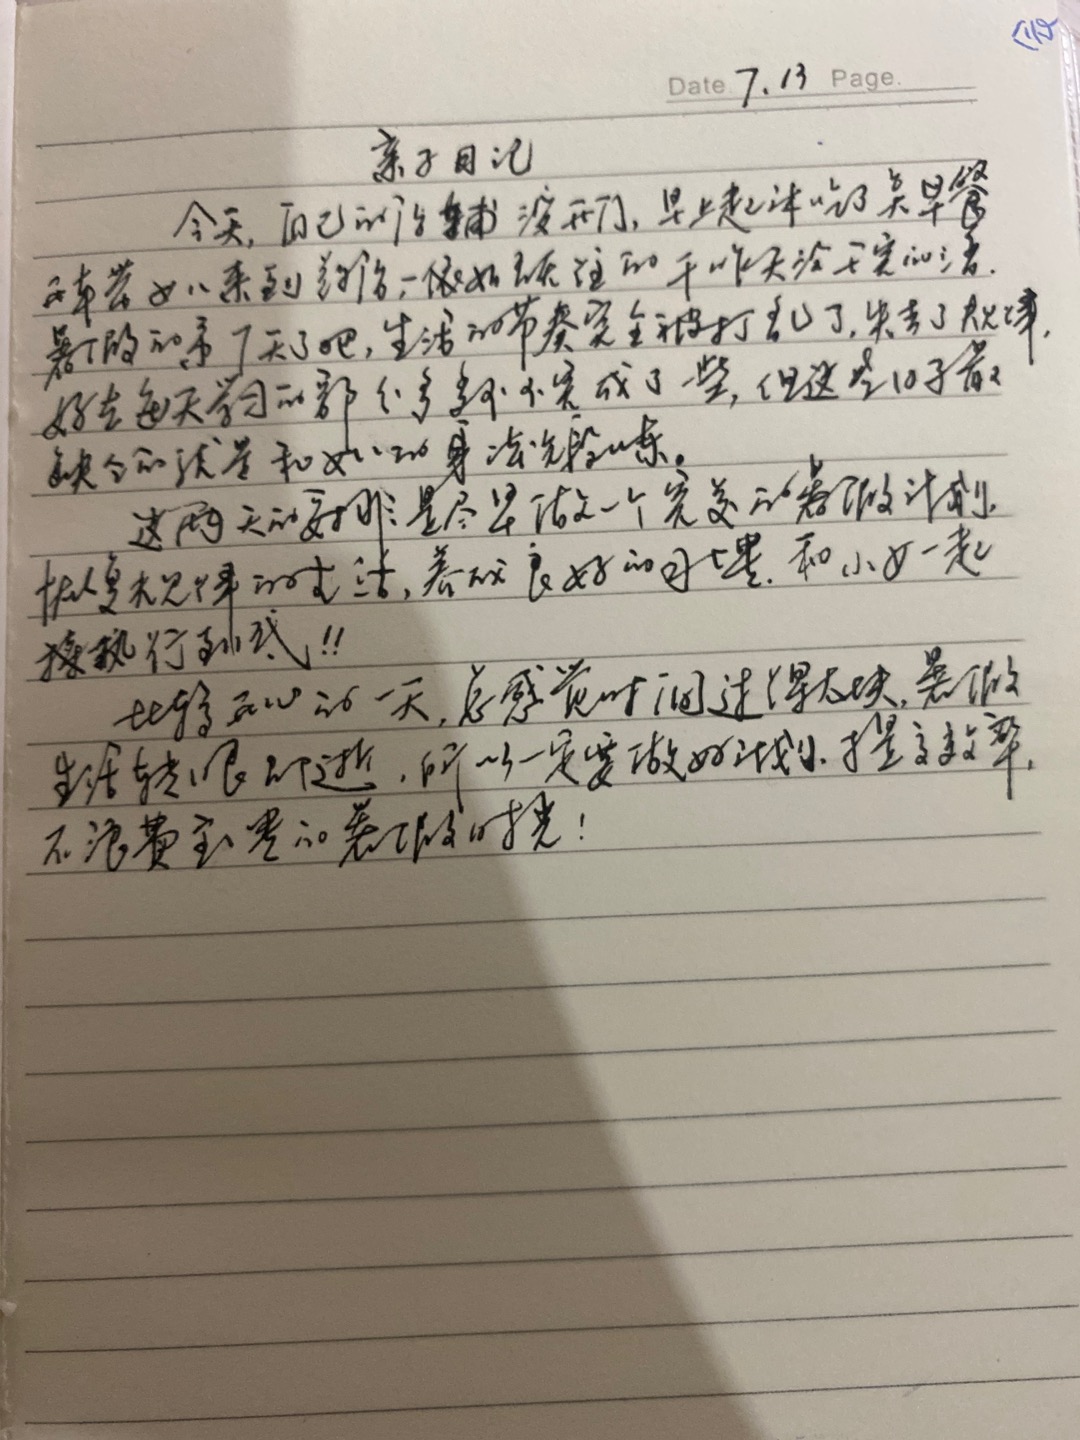 Date 7.13 Page.
亲子日记
今天,自己的 辅 没开门,早上起床吃了点早餐
带女儿来到 ,一 如 往的干昨天没干完的活.
暑假的第7天了吧,生活的节奏完全被打乱了,失去了规律,
好在每天学习的部分多多少少完成了一些,但这些日子最
缺乏的就是和女儿的身 锻炼。
这两天的安排:是尽早做一个完美的暑假计划,
恢复规律的生活,养成良好的习惯.和小女一起
执行到底!!
比较 心的一天,总感觉时间过得太快,暑假
生活转眼即逝,所以一定要做好计划.提高效率,
不浪费宝贵的暑假时光!